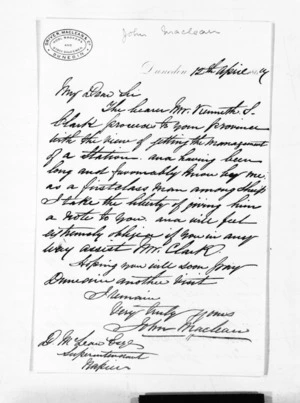 John Maclean
DRIVER, MACLEAN & Co
DUNEDIN
Dunedin 12th April
My Dear Sir
The bearer Mr. Kenneth J.
Clark proceeds to your Province
with the view of getting the management
of a Station and having been
long and favorably known by me
as a first class man among sheep
I take the liberty of giving him
a note to you and will feel
extremely obliged if you in any
way assist Mr. Clark
Hoping you will soon pay
Dunedin another visit
I remain
Very truly yours
John Maclean
D. McLean Esqr
Superintendent
Napier